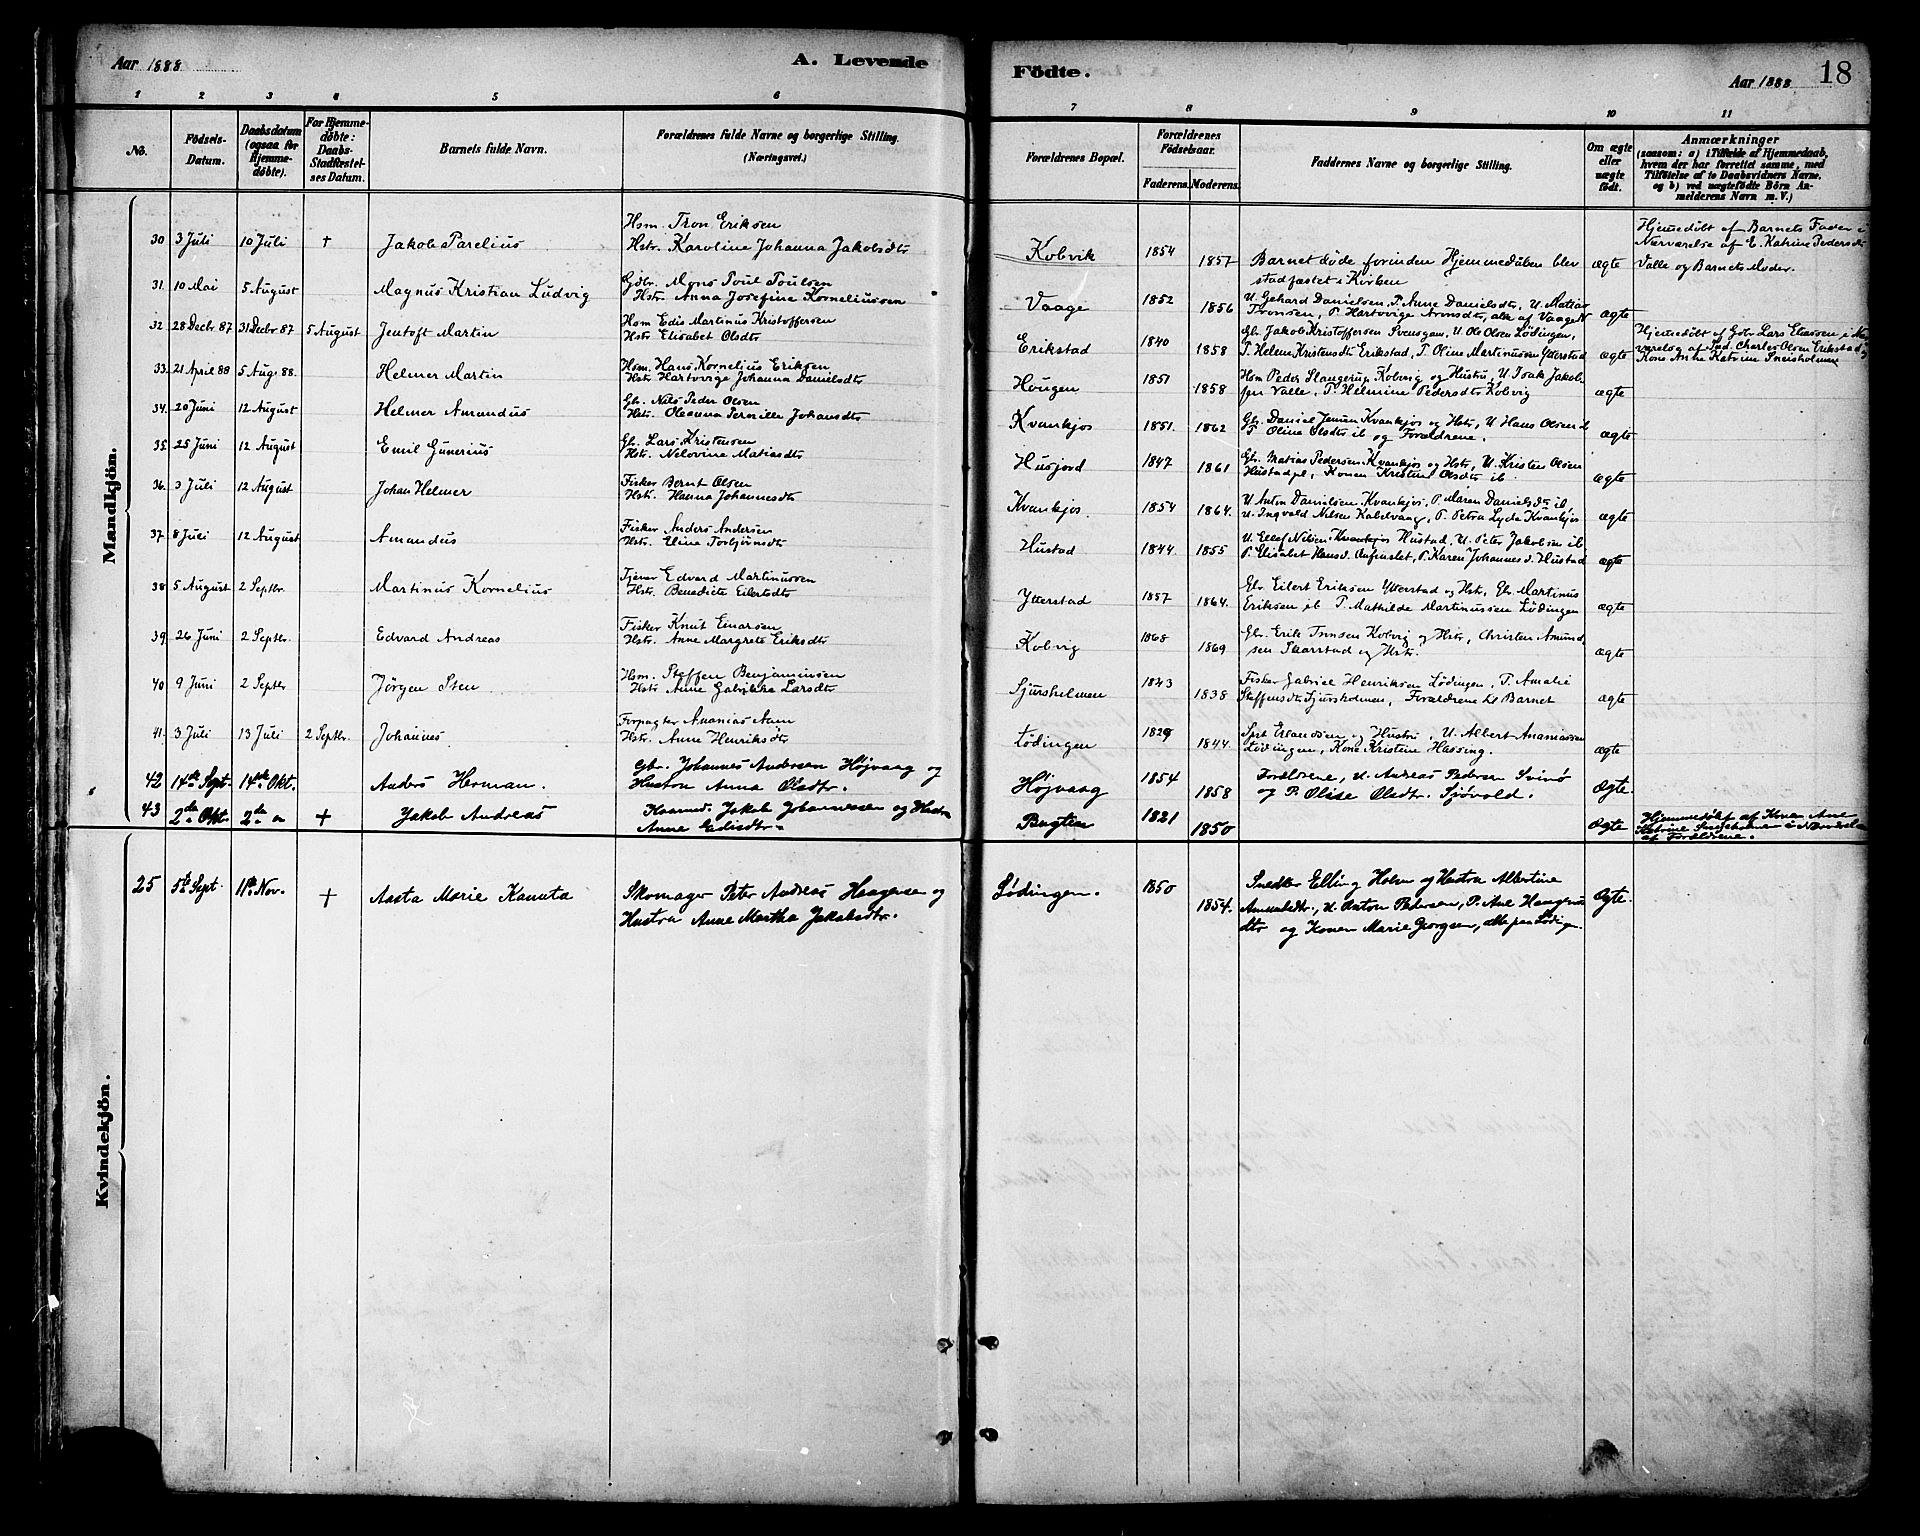 Aar 1888
A. Levende
Födte.
Aar 1888
18
1 2 3 4 5 6
7 8 9 10 11
No.
Födsels-
Datum.
Daabsdatum
(ogsaa for
Hjemme-
døbte).
For Hjemme-
døbte:
Daabs-
Stadfæstel-
ses Datum.
Barnets fulde Navn.
Forældrenes fulde Navne og borgerlige Stilling.
(Næringsvei.)
Forældrenes Bopæl.
Forældrenes
Födselsaar.
Faderens. Moderens.
Faddernes Navne og borgerlige Stilling.
Om ægte
eller
uægte
født.
Anmærkninger
(saasom: a) i Tilfælde af Hjemmedaab,
hvem der har forrettet samme, med
Tilföielse af to Daabsvidners Navne.
og b) ved uægtefödte Börn An-
melderens Navn m. V.)
Mandkjön.
30 3 Juli 10 Juli + Jakob Parelius
Hsm. Tron Eriksen
Hstr. Karoline Johanna Jakobsdtr
Kobvik 1854 1857
Barnet døde forinden Hjemmedaaben blev
stadfæstet i Kirken
ægte
Hjemmedøbt af Barnets Fader i
Nærværelse af E. Katrine Pedersdtr
Valle og Barnets Moder.
31. 10 Mai 5 August Magnus Kristian Ludvig
Gdbr. Mons Poul Poulsen
Hstr. Anna Josefine Korneliussen
Vaage 1852 1856
U. Gehard Danielsen, P. Anne Danielsdtr, U. Matias
Tronsen, P. Hartvige Aronsdtr, alle af Vaage
ægte
32. 28 Decbr 87 31 Decbr 87 5 August Jentoft Martin
Hsm Edis Martinus Kristoffersen
Hstr Elisabet Olsdtr
Erikstad 1840 1858
Gbr. Jakob Kristoffersen Svensgam, U. Ole Olsen Lødingen,
P. Helene Kristensdtr Erikstad, P. Oline Martinussen Ytterstad
ægte
Hjemmedøbt af Gbr. Lars Einarsen i Nær
værelse af Charles Olsen Erikstad og
Kone Anne Katrine Sneisholmen
33. 21 April 88 5 Aug. 88. Helmer Martin
Hsm. Hans Kornelius Eriksen
Hstr Hartvige Johanna Danielsdtr
Hougen 1851 1858
Hsm Peder Slangerup Kobvig og Hustru, U. Isak Jakob-
sen Valle, P. Helmine Pedersdtr Kobvig
ægte
34. 20 Juni 12 August Helmer Amandus
Gbr. Nils Peder Olsen
Hstr. Oleanna Pernille Johansdtr
Kvankjos 1851. 1862
Gbr. Daniel Jensen Kvankjos og Hstr, U. Hans Olsen ib
P. Olina Olsdtr ib og Forældrene.
ægte
35. 25 Juni 12 August Emil Gunerius
Gbr. Lars Kristensen
Hstr. Nelovine Matiasdtr
Husjord 1847 1861
Gbr. Matias Pedersen Kvankjos og Hstr, U. Kristen Olsen
Hustad pl, Konen Kristine Olsdtr ib.
ægte
36. 3 Juli 12 August Johan Helmer
Fisker Bernt Olsen
Hstr. Hanna Johannesdtr
Kvankjos 1854 1864
U. Anton Danielsen Kvankjos, P. Maren Danielsdtr ib,
U. Ingvald Nilsen Kabelvaag, P. Petra Lyda Kvankjos
ægte
37. 8 Juli 12 August Amandus
Fisker Anders Andersen
Hstr. Elina Torbjørnsdtr
Hustad 1844. 1855
U. Ellef Nilsen Hustad, U. Peter Jakobsen ib
P. Elisabet Hansd. Aufinslet, P. Karen Johannesd. Hustad
ægte
38 5 August 2 Septbr. Martinus Kornelius
Tjener Edvard Martinussen
Hstr. Benedicte Eilertsdtr
Ytterstad 1857 1864.
Gbr. Eilert Eriksen Ytterstad og Hstr, Gbr. Martinus
Eriksen ib P. Mathilde Martinussen Lødingen
ægte
39. 26 Juni 2 Septbr. Edvard Andreas
Fisker Knut Einarsen
Hstr. Anne Margrete Eriksdtr
Kobvig 1868 1869
Gbr. Erik Tronsen Kobvig og Hstr, Christen Amund
sen Skarstad og Hstr.
ægte
40 9 Juni 2 Septbr Jørgen Sten
Hsm. Steffen Benjaminsen
Hstr Anne Gabrikke Larsdtr
Sjursholmen 1843 1838
Fisker Gabriel Henriksen Lødingen, P. Amalie
Steffensdtr Sjursholmen, Forældrene til Barnet
ægte
41. 3 Juli 13 Juli 2 Septbr. Johannes
Forpagter Ananias Aam
Hstr. Anne Henriksdtr
Lødingen 1829 1844.
Sprt Erlandsen og Hustru, U. Albert Ananiassen
Lødingen, Kone Kristine Hassing.
ægte
42 14de Sept. 14de Okt. Anders Herman.
Gbr. Johannes Andersen Højvaag og
Hustru Anna Olsdtr.
Højvaag 1854 1858
Forældrene, U. Andreas Pedersen Svinø
og P. Olise Olsdtr. Sjövold.
Ægte.
43 2de Okt. 2de " + Jakob Andreas
Husmd. Jakob Johannessen og Hustru
Anne Edisdtr.
Bugten 1821 1850
Ægte
Hjemmedøbt af Konen Ane
Katrine Sneisholmen i Nærværelse
af Forældrene.
Kvindekjön.
25 5te Sept. 11te Nov. + Aasta Marie Kanuta
Skomager Peter Andreas Haagensen og
Hustru Anne Martha Jakobsdtr.
Lødingen. 1850 1854.
Snedker Elling Holm og Hustru Albertine
Amundsdtr., U. Anton Pedersen, P. Ane Haagens
dtr og Konen Marie Georgsen, alle paa Lødingen.
Ægte.